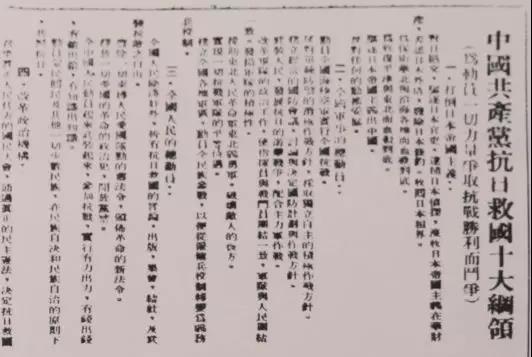 中國共產黨抗日救國十大綱領
(為動員一切力量爭取抗戰勝利而鬥爭)
一・打倒日本帝國主義。
對日絕交,驅逐日本官吏,逮捕日本偵探,沒收日本帝國主義在華財
產,否認日本外債,廢除日本條約,收回日本租界。
為保衛華北與沿海各地而血戰到底。
為收復平津與東北而血戰到底。
驅逐日本帝國主義出中國。
反對任何的動搖妥協。
二・全國軍事的總動員。
動員全國陸海空軍實行全國抗戰。
反對單純防禦的消極作戰方針,採取獨立自主的積極作戰方針。
設立經常的國防會議,討論與決定國防計劃與作戰方針。
武裝人民,發展抗日的游擊戰爭,配合主力軍作戰。
改革軍隊的政治工作,使指揮員與戰鬥員團結一致。軍隊與人民團結
一致,發揚軍隊的積極性。
援助東北人民革命軍東北義勇軍,破壞敵人的後方。
實現一切抗戰軍隊的平等待遇。
建立全國各地軍區,動員全民族參戰,以便從僱傭兵役制轉變為義務
兵役制。
三・全國人民的總動員。
全國人民除漢奸外,皆有抗日救國的言論,出版,集會,結社,及武
裝抗敵之自由。
廢除一切束縛人民愛國運動的舊法令,頒佈革命的新法令。
釋放一切愛國的革命的政治犯,開放黨禁。
全中國人民動員起來武裝起來,參加抗戰,實行有力出力,有錢出錢
,有槍出槍,有知識出知識。
動員蒙民回民及其他一切少數民族,在民族自決和民族自治的原則下
,共同抗日。
四・改革政治機構。
召集真正人民代表的國民大會,通過真正的民主憲法,決定抗日救國